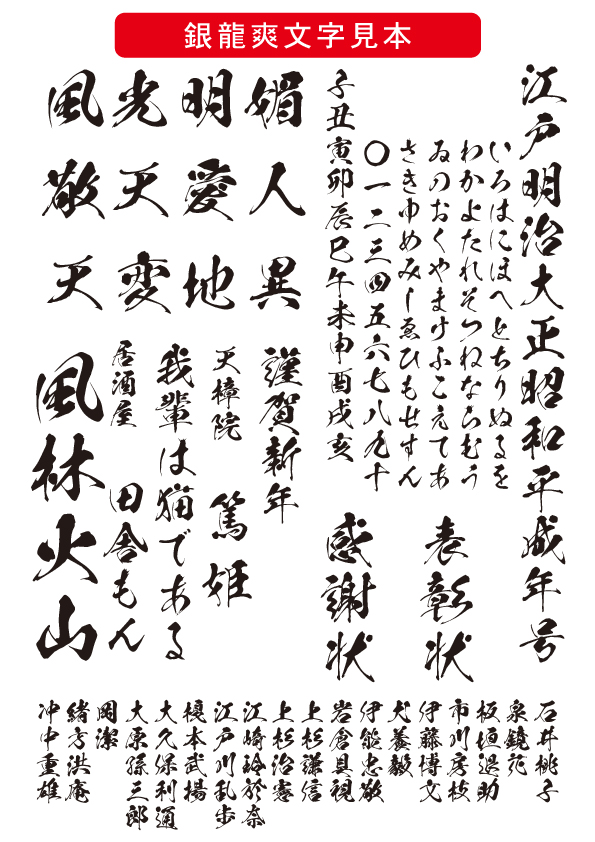 銀龍爽文字見本
江戸明治大正昭和平成年号
いろはにほへとちりぬるを
わかよたれそつねならむう
ゐのおくやまけふこえてあ
さきゆめみしゑひもせすん
〇一二三四五六七八九十
子丑寅卯辰巳午未申酉戌亥
表彰状
感謝状
風光明媚
敬天愛人
天変地異
謹賀新年
天樟院 篤姫
我輩は猫である
居酒屋 田舎もん
風林火山
石井桃子
泉鏡苑
板垣退助
市川房枝
伊藤博文
犬養毅
伊能忠敬
岩倉具視
上杉謙信
上杉治憲
江崎玲於奈
江戸川乱歩
榎本武揚
大久保利通
大原孫三郎
岡潔
緒方洪庵
冲中重雄